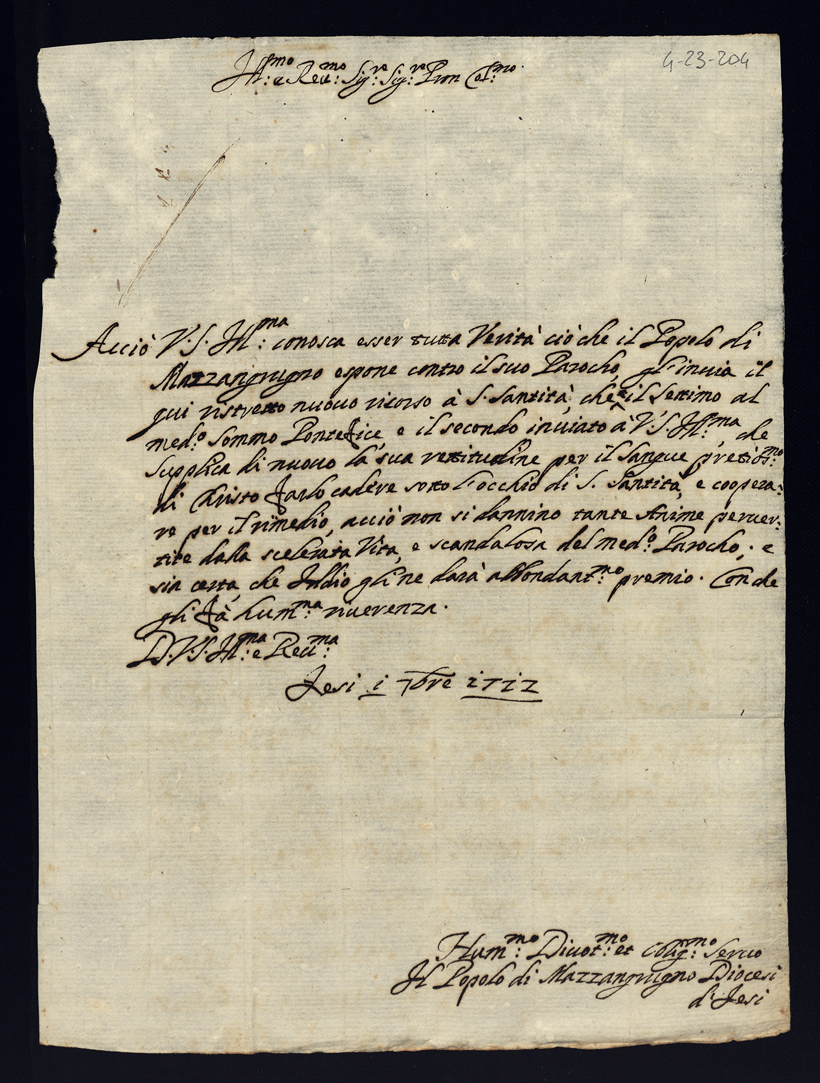 4-23-204
Ill:mo e Rev:mo Sig:re Sig:re Pron Col:mo
Acciò V.S. Ill:ma conosca esser tutta Verità ciò che il Popolo di
Mazzangrugno espone contro il suo Parocho, gl'invia il
qui ristretto nuovo ricorso à S. Santità, che è il settimo al
med:o Sommo Pontefice, e il secondo inviato à V.S. Ill:ma, che
supplica di nuovo la sua rettitudine per il sangue pretios:mo
di Christo farlo cadere sotto l'occhio di S. Santità, e coopera:
re per il rimedio, acciò non si dannino tante Anime perver:
tite dalla scelerata Vita, e scandalosa del med:o Parocho, e
sia certa, che Iddio gli ne darà abbondant:mo premio. Con che
gli fà hum:ma riverenza.
D.V.S. Ill:ma e Rev:ma
Jesi i 7bre 1712
Hum:mo Divot:mo et Oblig:mo Servo
Il Popolo di Mazzangrugno Diocesi
di Jesi